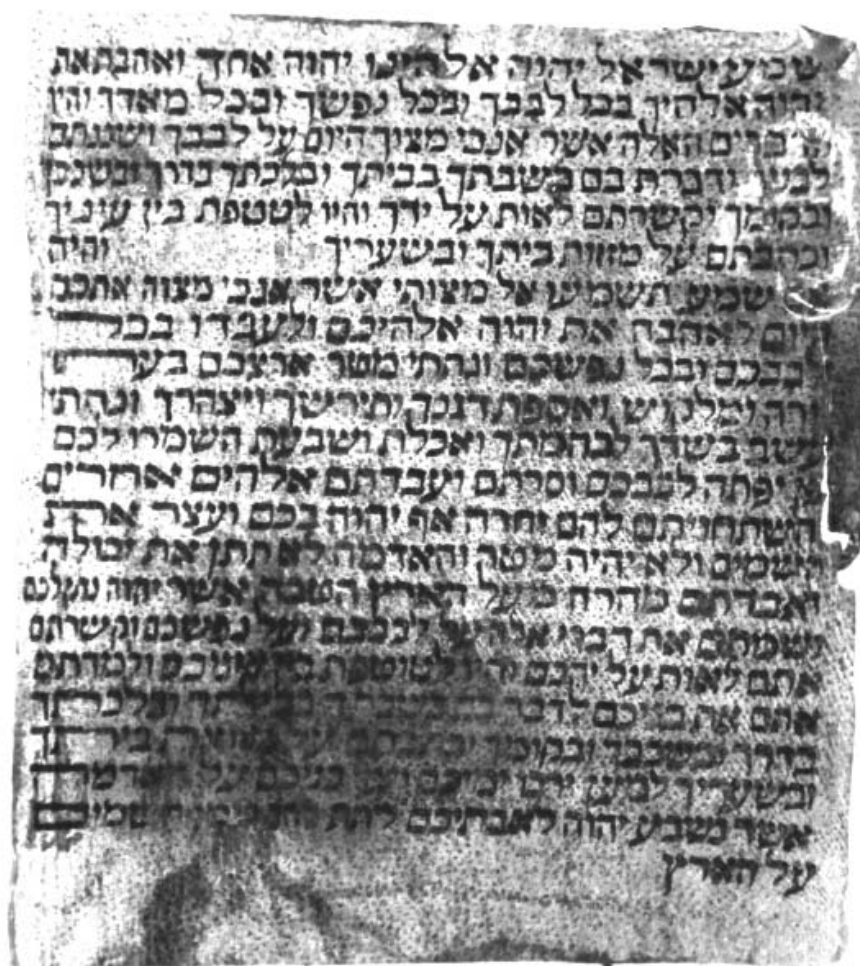 שמע ישראל יהוה אלהינו יהוה אחד ואהבת את
יהוה אלהיך בכל לבבך ובכל נפשך ובכל מאדך והיו
הדברים האלה אשר אנכי מצוך היום על לבבך ושננתם
לבניך ודברת בם בשבתך בביתך ובלכתך בדרך ובשכבך
ובקומך וקשרתם לאות על ידך והיו לטטפת בין עיניך
וכתבתם על מזזות ביתך ובשעריך והיה
שמע תשמעו אל מצותי אשר אנכי מצוה אתכם
היום לאהבה את יהוה אלהיכם ולעבדו בכל
לבבכם ובכל נפשכם ונתתי מטר ארצכם בעתו
יורה ומלקוש ואספת דגנך ותירשך ויצהרך ונתתי
עשב בשדך לבהמתך ואכלת ושבעת השמרו לכם
יפתה לבבכם וסרתם ועבדתם אלהים אחרים
והשתחויתם להם וחרה אף יהוה בכם ועצר את
השמים ולא יהיה מטר והאדמה לא תתן את יבולה
ואבדתם מהרה מעל הארץ הטבה אשר יהוה נתן לכם
ושמתם את דברי אלה על לבבכם ועל נפשכם וקשרתם
אתם לאות על ידכם והיו לטוטפת בין עיניכם ולמדתם
אתם את בניכם לדבר ובלכתך
בדרך ובשכבך ובקומך וכתבתם על מזוזות ביתך
ובשעריך למען ירבו ימיכם וימי בניכם על האדמה
אשר נשבע יהוה לאבתיכם לתת להם השמים
על הארץ